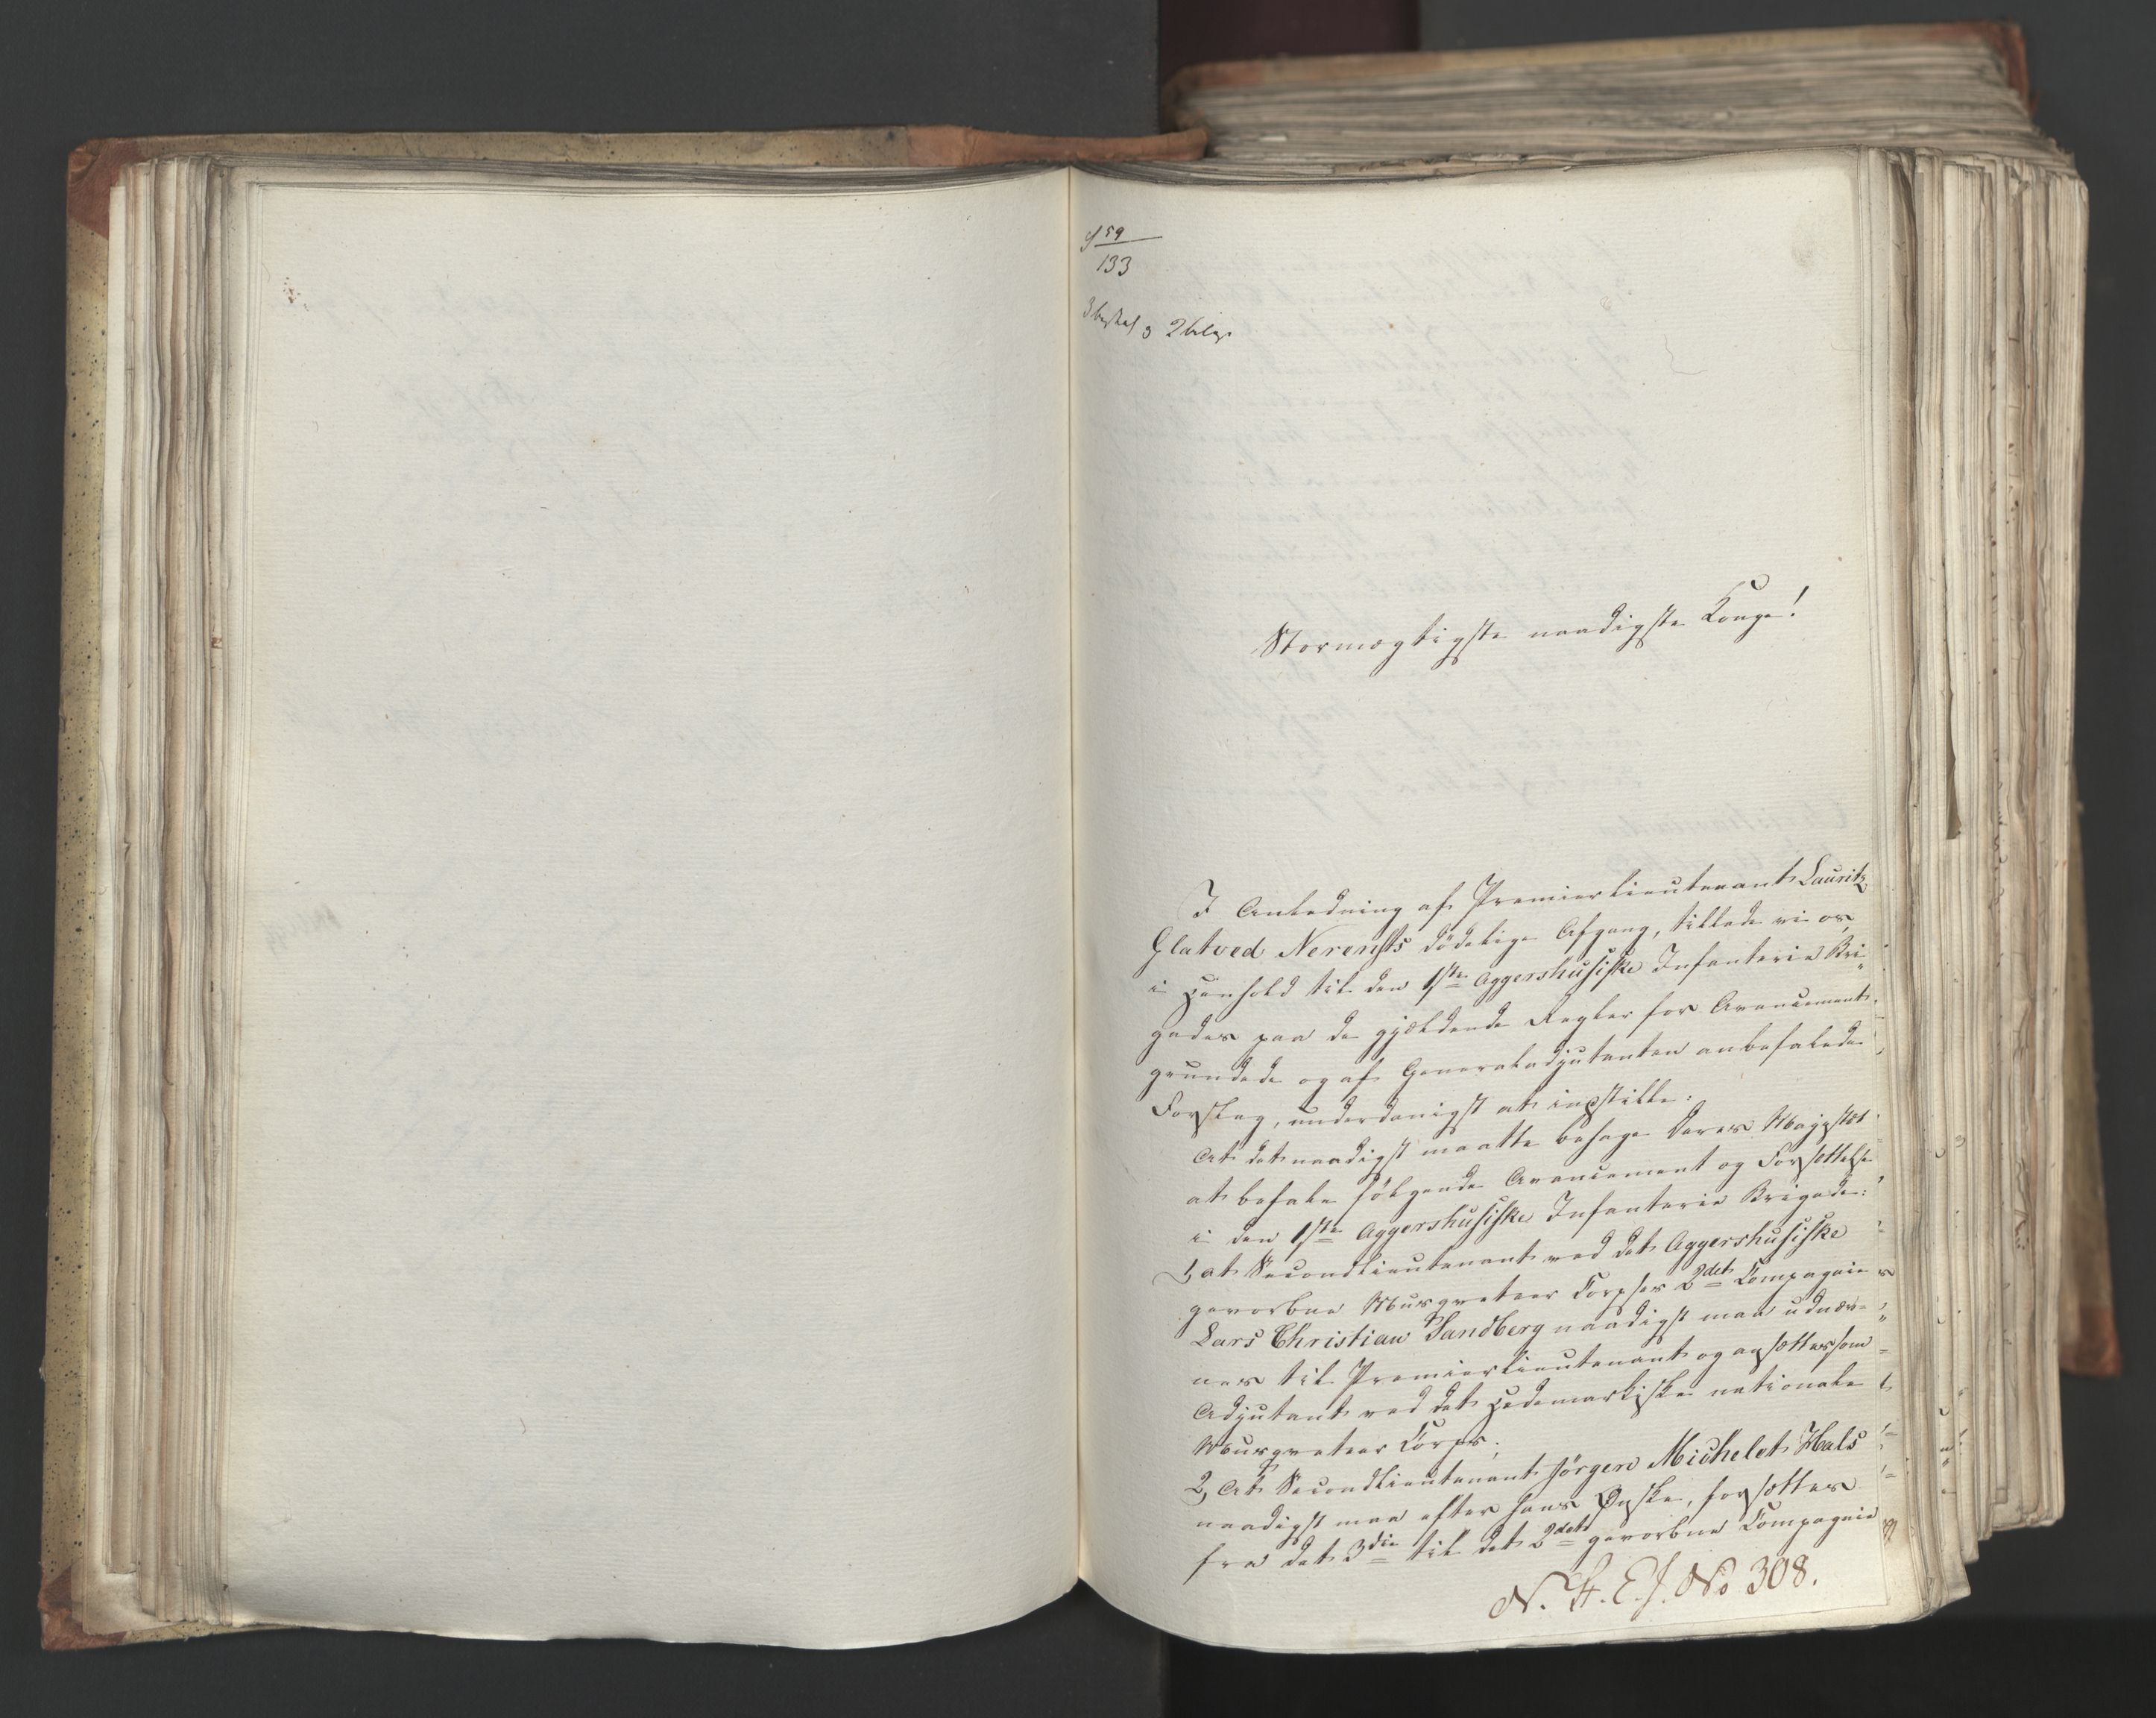 59
133
2 bilag
Stormægtigste naadigste Konge!
I Anledning af Premierlieutenant Lauritz
Glatved Nerensts dödelige Afgang, tillade vi os,
i Henhold til den 1ste Aggershusiske Infanterie Bri-
gades paa de gjældende Regler for Avancement
grundede og af Generaladjutanten anbefalede
Forslag, underdanigst at indstille:
At det naadigst maatte behage Deres Majestæt
at befale følgende Avancement og Forsættelse
i den 1ste Aggershusiske Infanterie Brigade:
1, at Secondlieutenant ved det Aggershusiske
gevorbne Musqueteer Corpses 2det Compagnie
Lars Christian Sandberg naadigst maa udnæv-
nes til Premierlieutenant og ansættes som
Adjutant ved det Hedemarkiske nationale
Musqueteer Corps;
2, At Secondlieutenant Jörgen Michelet Hals
naadigst maa efter hans Ønske, forsættes
fra det 3die til det 2det gevorbne Compagnie
N. H. E. J. No 308.